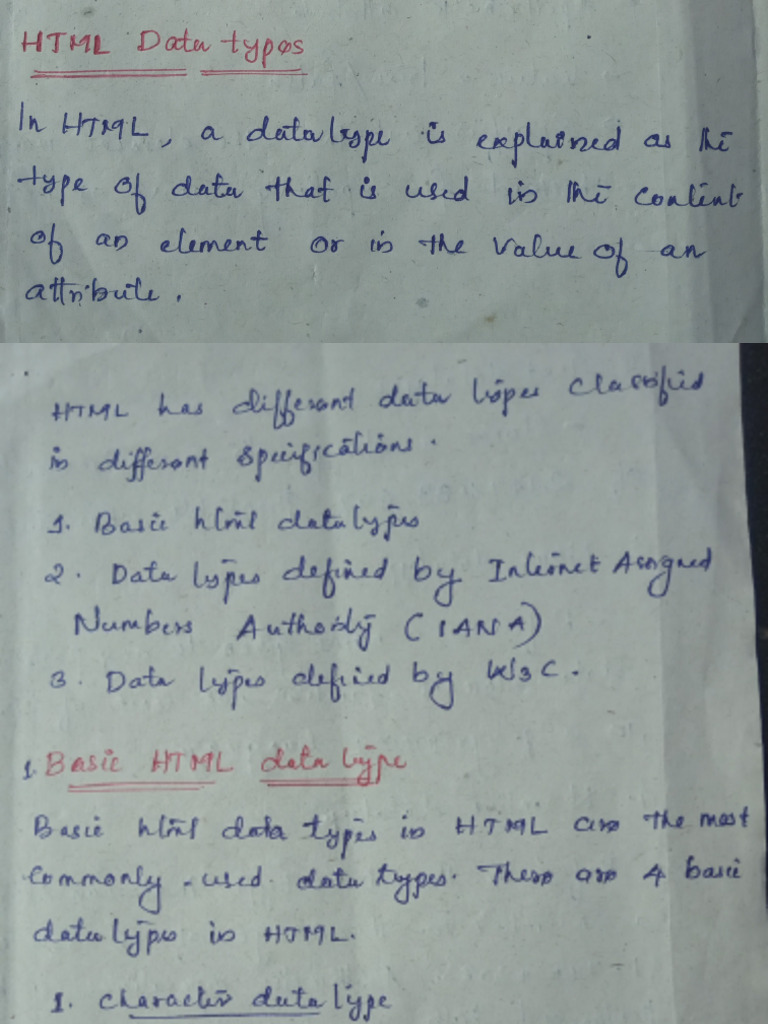 HTML Data types
In HTML, a datatype is explained as the
type of data that is used in the content
of an element or in the value of an
attribute.
HTML has different data types classified
in different specifications.
1. Basic html datatypes
2. Data types defined by Internet Assigned
Numbers Authority (IANA)
3. Data types defined by W3C.
1. Basic HTML data type
Basic html data types in HTML are the most
commonly used data types. There are 4 basic
data types in HTML.
1. Character data type